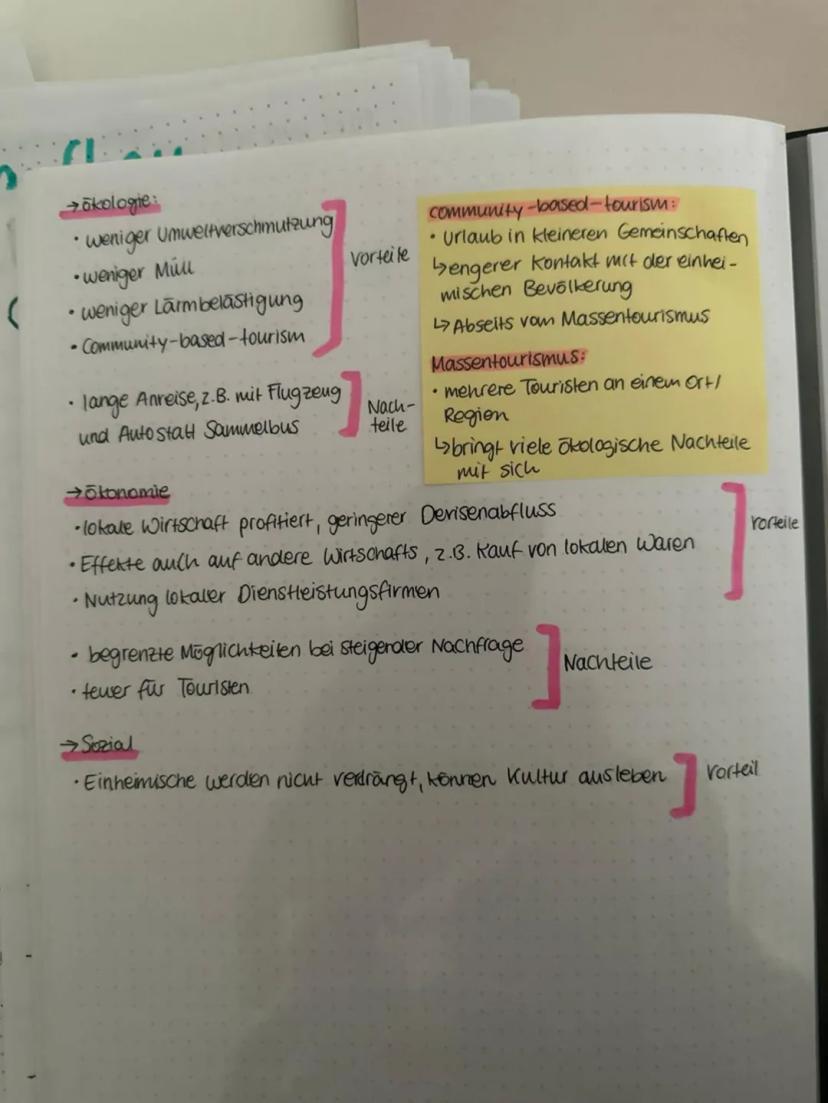 →ökologie:
• weniger Umweltverschmutzung
• weniger Müll
• weniger Lärmbelästigung
• Community-based-tourism
Vorteile
• lange Anreise, z.B. mit Flugzeug
und Auto statt Sammelbus
Nach-
teile
community-based-tourism:
• Urlaub in kleineren Gemeinschaften
↳engerer Kontakt mit der einhei-
mischen Bevölkerung
↳ Abseits vom Massentourismus
Massentourismus:
• mehrere Touristen an einem Ort/
Region
↳bringt viele ökologische Nachteile
mit sich
→ökonomie
• lokale Wirtschaft profitiert, geringerer Devisenabfluss
• Effekte auch auf andere Wirtschafts, z.B. Kauf von lokalen Waren
• Nutzung lokaler Dienstleistungsfirmen
Vorteile
• begrenzte Möglichkeiten bei steigender Nachfrage
• teuer für Touristen
Nachteile
→ Sozial
• Einheimische werden nicht verdrängt, können Kultur ausleben
Vorteil